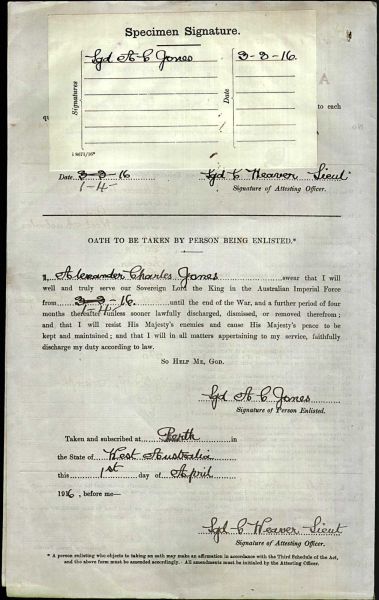 Specimen Signature.
Signatures
Sgd A C Jones
Date
3-3-16.
to each
Date 3-3-16
1-4-
Sgd C Heaver Lieut
Signature of Attesting Officer.
OATH TO BE TAKEN BY PERSON BEING ENLISTED.*
I, Alexander Charles Jones swear that I will
well and truly serve our Sovereign Lord the King in the Australian Imperial Force
from 3-3-16. until the end of the War, and a further period of four
1-4
months thereafter unless sooner lawfully discharged, dismissed, or removed therefrom;
and that I will resist His Majesty's enemies and cause His Majesty's peace to be
kept and maintained; and that I will in all matters appertaining to my service, faithfully
discharge my duty according to law.
SO HELP ME, GOD.
Sgd A C Jones
Signature of Person Enlisted.
Taken and subscribed at Perth in
the State of West Australia
this 1st day of April
1916, before me—
Sgd C Heaver Lieut
Signature of Attesting Officer.
* A person enlisting who objects to taking an oath may make an affirmation in accordance with the Third Schedule of the Act,
and the above form must be amended accordingly. All amendments must be initialed by the Attesting Officer.